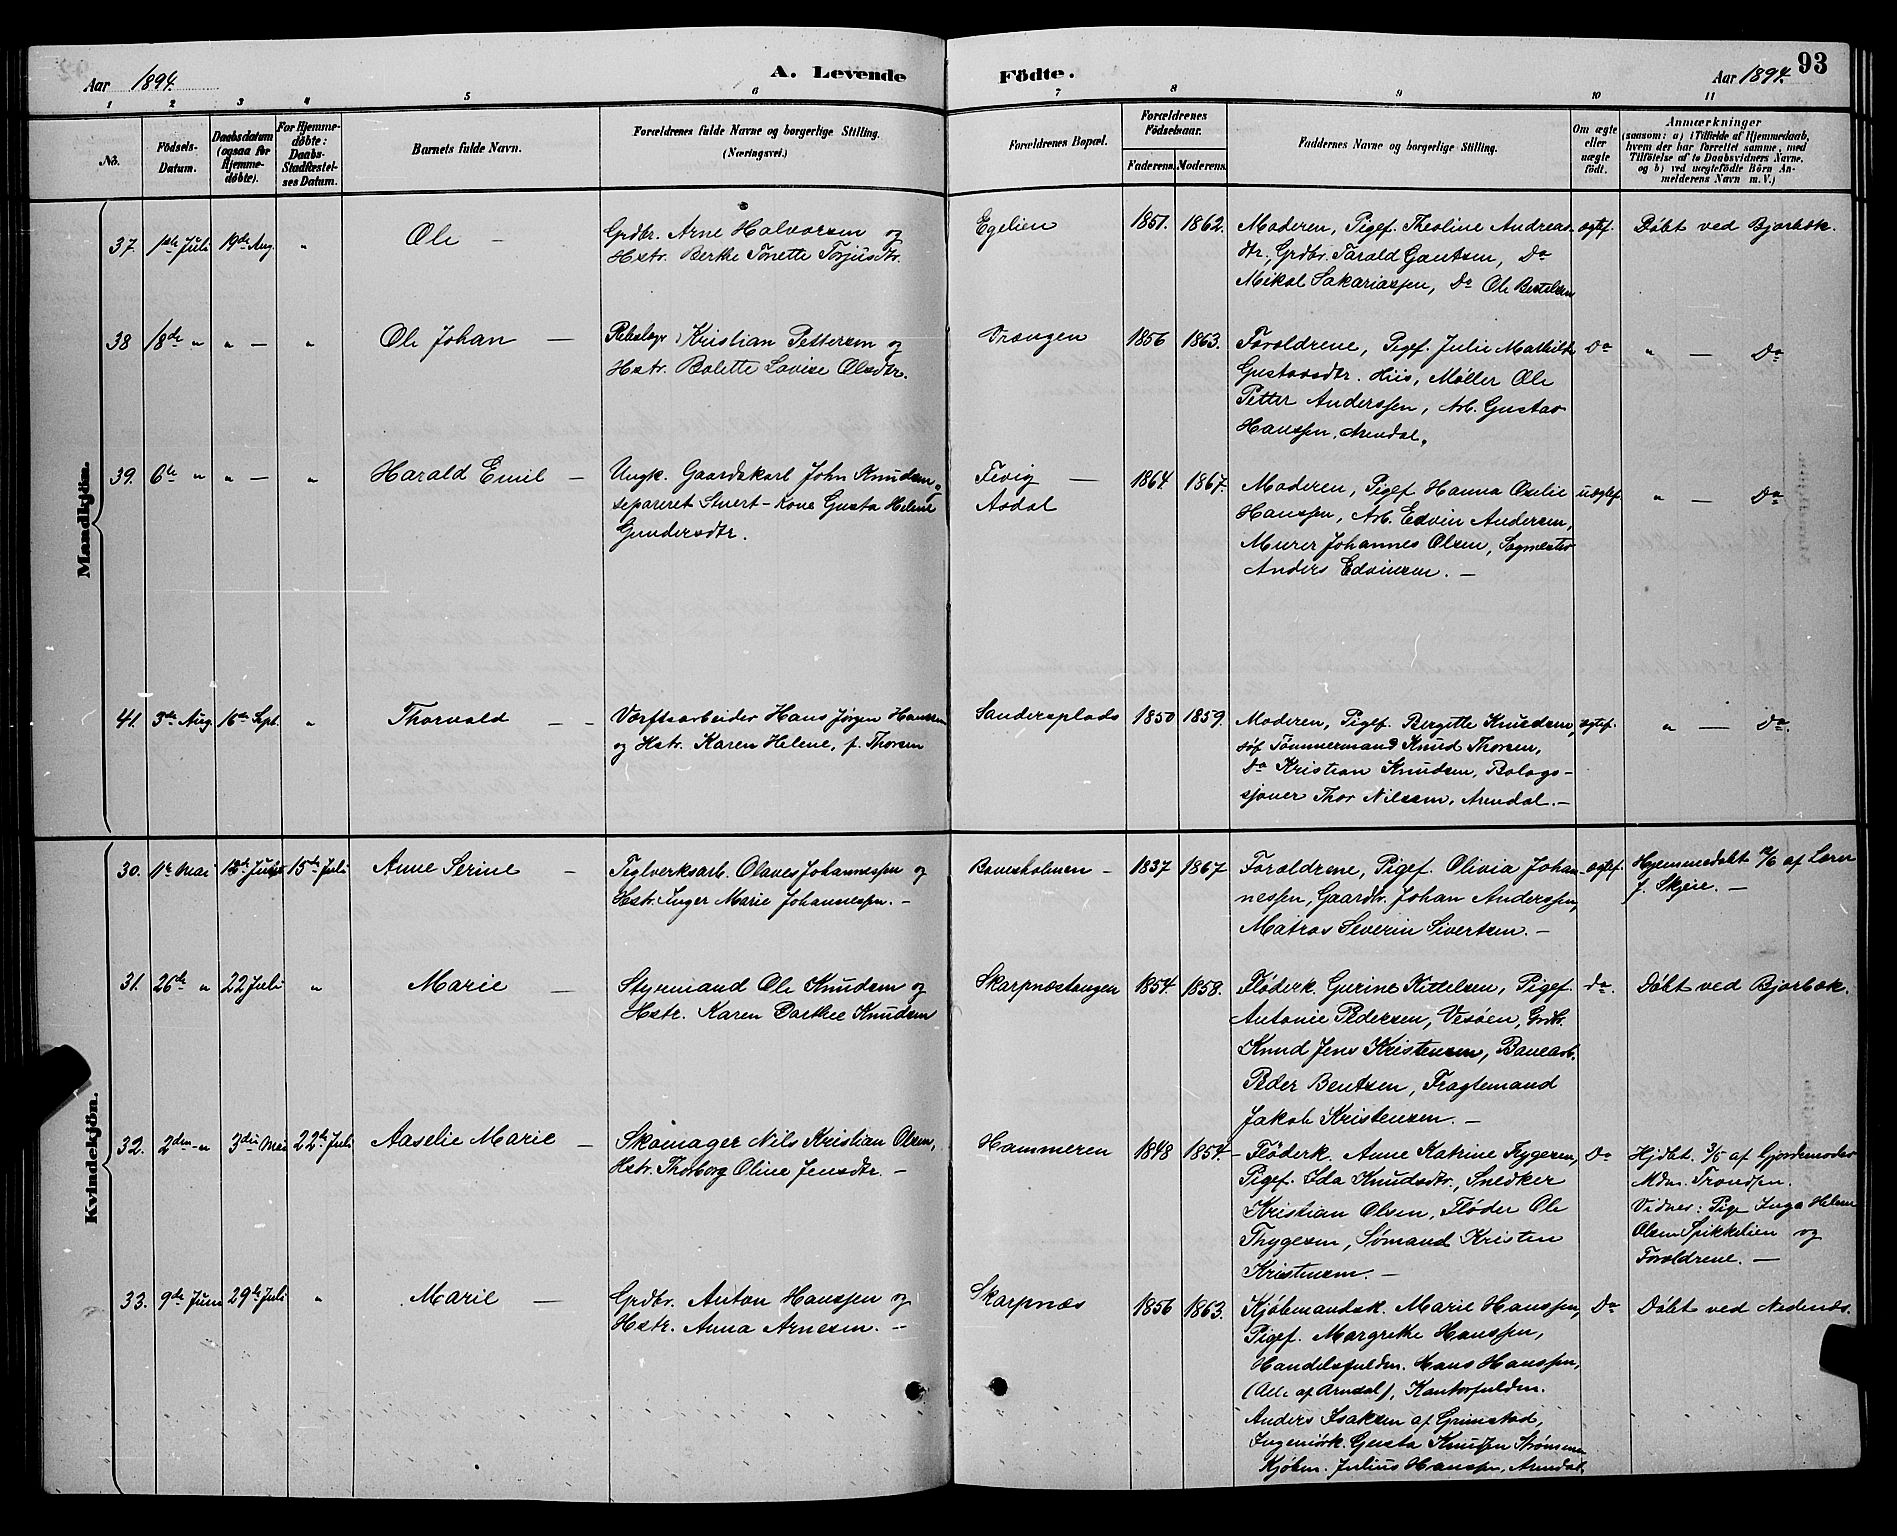 Aar 1894.
A. Levende Fødte.
Aar 1894. 93
1 2 3 4 5 6 7 8 9 10 11
No. Fødsels-Datum. Daabsdatum (ogsaa for Hjemme-døbte). For Hjemme-døbte: Daabs-Stadfæstel-ses Datum. Barnets fulde Navn. Forældrenes fulde Navne og borgerlige Stilling. (Næringsvei.) Forældrenes Bopæl. Forældrenes Fødselsaar. Faderens. Moderens. Faddernes Navne og borgerlige Stilling. Om ægte eller uægte født. Anmærkninger
(saasom: a) i Tilfælde af Hjemmedaab, hvem der har forrettet samme, med Tilføielse af to Daabsvidners Navne, og b) ved uægtefødte Børn An-melderens Navn m. V.)
Mandkjön.
37. 1ste Juli 19de Aug. " Ole – Grdbr. Arne Halvorsen og Egelien 1851. 1862. Moderen, Pigef. Theoline Andreas- ægtef. Døbt ved Bjorbæk.
Hstr. Berthe Tonette Torjusdtr.
dtr., Grdbr. Tarald Gautsen, Do
Mikal Sakariassen, Do Ole Bertelsen
38 18de " " – " Ole Johan – Kristian Pettersen og Vrængen 1856 1863. Forældrene, Pigef. Julie Mathilde Do " – Do
Hstr. Bolette Lovise Olsdtr.
Gustavsdtr. Hiis, Møller Ole
Petter Anderssen, Arb. Gustav
Hanssen, Arendal.
39. 6te " " – " Harald Emil – Ungk. Gaardskarl John Knudsen, Fevig – 1864 1867. Moderen, Pigef. Hanna Oselie uægtef. " – Do
separeret Kone Gusta Helene Aadal
Hanssen, Arb. Edvin Andersen,
Gundersdtr.
Murer Johannes Olsen, Sagmester
Anders Edvinsen. –
41. 3de Aug. 16de Sept. " Thorvald – – Værftsarbeider Hans Jørgen Hanssen Sandersplads 1850 1859. Moderen, Pigef. Bergitte Knudsen, ægtef. " – Do.
og Hstr. Karen Helene, f. Thorsen
Tømmermand Knud Thorsen,
Do Kristian Knudsen, Bolags-
sjouer Thor Nilssen, Arendal. –
Kvindekjön.
30. 1ste Mai 15de Juli Anne Serine – Teglverksarb. Olaves Johannessen og – 1837 1867 Forældrene, Pigef. Olivia Johan- ægtef. Hjemmedøbt af
Hstr. Inger Marie Johannessen. –
nessen, Gaardbr. Johan Anderssen,
J. Skjeie. –
Matros Severin Sivertsen. –
31. 26de " 22 Juli " Marie – Styrmand Ole Knudsen og Skarpnæstangen 1854. 1858. Fløderk. Gurine Kittelsen, Pigef. do. Døbt ved Bjorbæk.
Hstr. Karen Dorthee Knudsen
Antonie Pedersen, Vesøen, Grdb.
Knud Jens Kristensen, Banearb.
Peder Bentsen, Fragtemand
Jakob Kristensen. –
32. 2den " 3die Mai 22de Juli Aaselie Marie – Skomager Nils Kristian Olsen, Hammeren 1848 1854 – Fløderk. Anne Katrine Tygesen, Do Hjdbt. 3/5 af Gjordemoder
Hstr. Thorborg Oline Jensdtr. –
Pigef. Ida Knudsdtr., Snedker
Mdm. Trondsen.
Kristian Olsen, Fløder Ole
Vidner: Pige Inga Helene
Thygesen, Sømand Kristen
Olsen Spikkelien og
Kristensen. –
Forældrene. –
33. 9de Juni 29de Juli " Marie – Grdbr. Anton Hanssen og Skarpnæs 1856 1863. Kjøbmandsk. Marie Hanssen, Do Døbt ved Nedenæs.
Hstr. Anna Arnesen. –
Pigef. Margrethe Hanssen,
Handelsfuldm. Hans Hanssen,
(Alle af Arndal), Kontorfuldm.
Anders Isaksen af Grimstad,
Ingeniørk. Gusta Knudsen Strømmen
Kjøbm. Julius Hanssen, Arendal